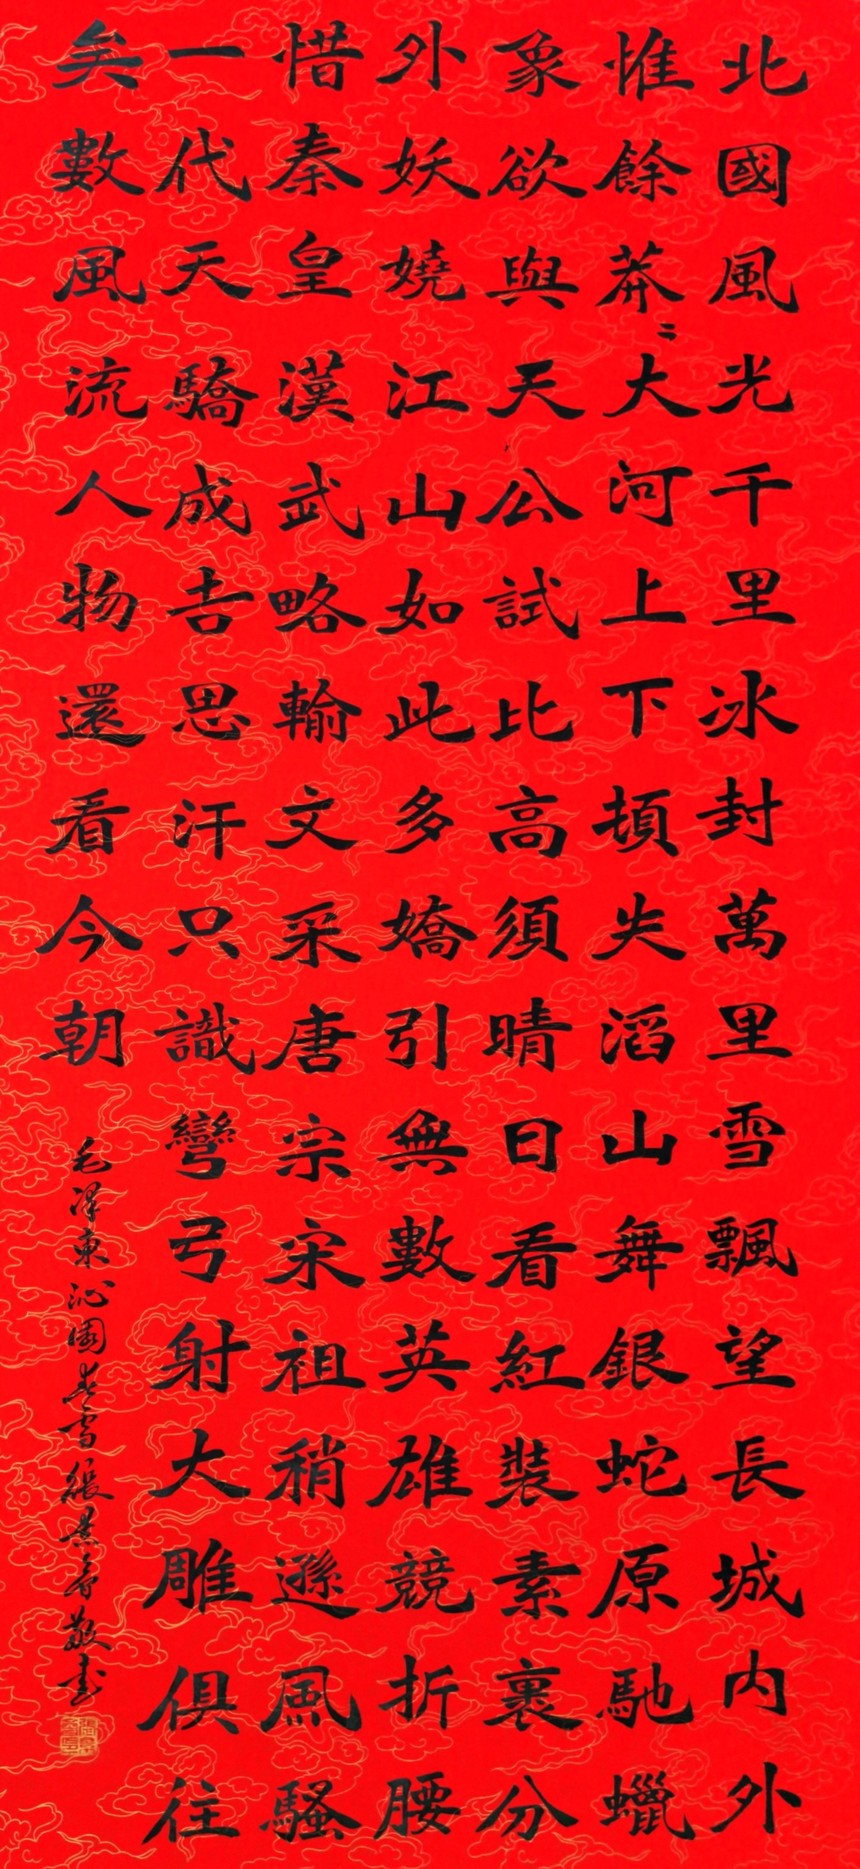 北國風光千里冰封萬里雪飄望長城内外
惟餘莽〻大河上下頓失滔山舞銀蛇原馳蠟
象欲與天公試比高須晴日看紅裝素裹分
外妖嬈江山如此多嬌引無數英雄競折腰
惜秦皇漢武略輸文采唐宗宋祖稍遜風騷
一代天驕成吉思汗只識彎弓射大雕俱住
矣數風流人物還看今朝
毛澤東沁園春雪張景敬書